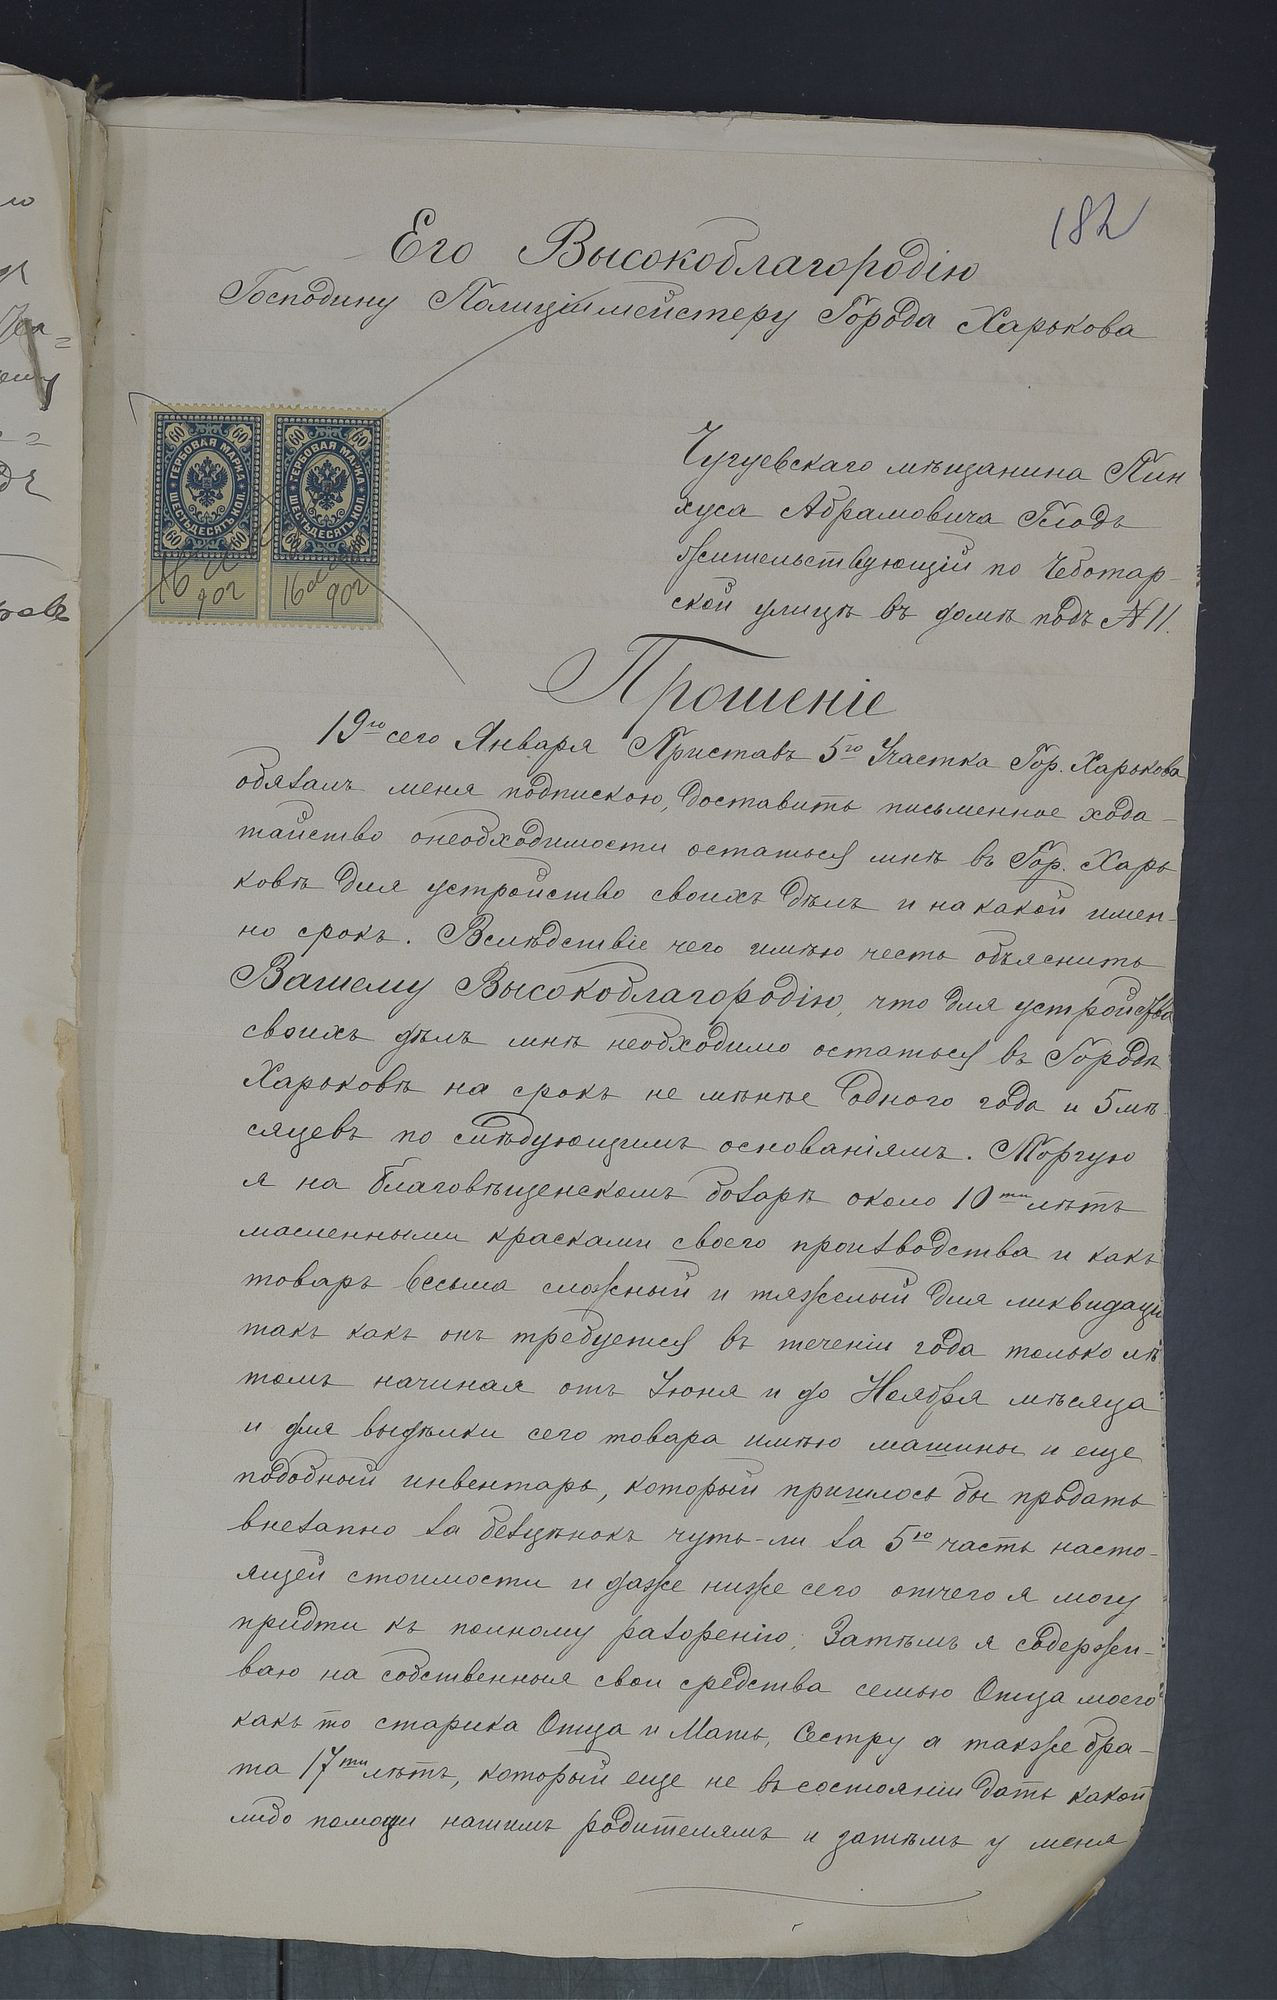 182
Его Высокоблагородію
Господину Полиціимейстеру Города Харькова
ГЕРБОВАЯ МАРКА
ШЕСТЬДЕСЯТЪ КОП.
60 60 60 60
ГЕРБОВАЯ МАРКА
ШЕСТЬДЕСЯТЪ КОП.
60 60 60 60
16
902
16
902
Чугуевскаго мѣщанина Пин
хуса Абрамовича
жительствующій по Чеботар-
ской улицѣ въ домѣ подъ № 11.
Прошеніе
19го сего Января Приставъ 5го Участка Гор. Харькова
обязалъ меня подпискою, доставить письменное хода-
тайство онеобходимости остаться мнѣ въ Гор. Харь
ковѣ для устройство своихъ дѣлъ и на какой имен-
но срокъ. Вслѣдствіе чего имѣю честь объяснить
Вашему Высокоблагородію, что для устройства
своихъ дѣлъ мнѣ необходимо остаться въ Городѣ
Харьковѣ на срокъ не мѣнѣе одного года и 5 мѣ-
сяцевъ по слѣдующимъ основаніямъ. Торгую
я на благовѣщенскомъ базарѣ около 10ти лѣтъ
масленными красками своего производства и какъ
товаръ весьма сложный и тяжелый для ликвидаціи
такъ какъ онъ требуется въ теченіи года только лѣ
томъ начиная отъ Іюня и до Ноября мѣсяца
и для выдѣлки сего товара имѣю машины и еще
подобный инвентарь, который пришлось бы продать
внезапно за безцѣнокъ чуть-ли за 5ю часть насто-
ящей стоимости и даже ниже сего отчего я могу
придти къ полному разоренію; Затѣмъ я содержи-
ваю на собственныя свои средства семью Отца моего
какъ то старика Отца и Мать, Сестру а также бра-
та 17ти лѣтъ, который еще не въ состояніи дать какой
либо помощи нашимъ родителямъ и затѣмъ у меня